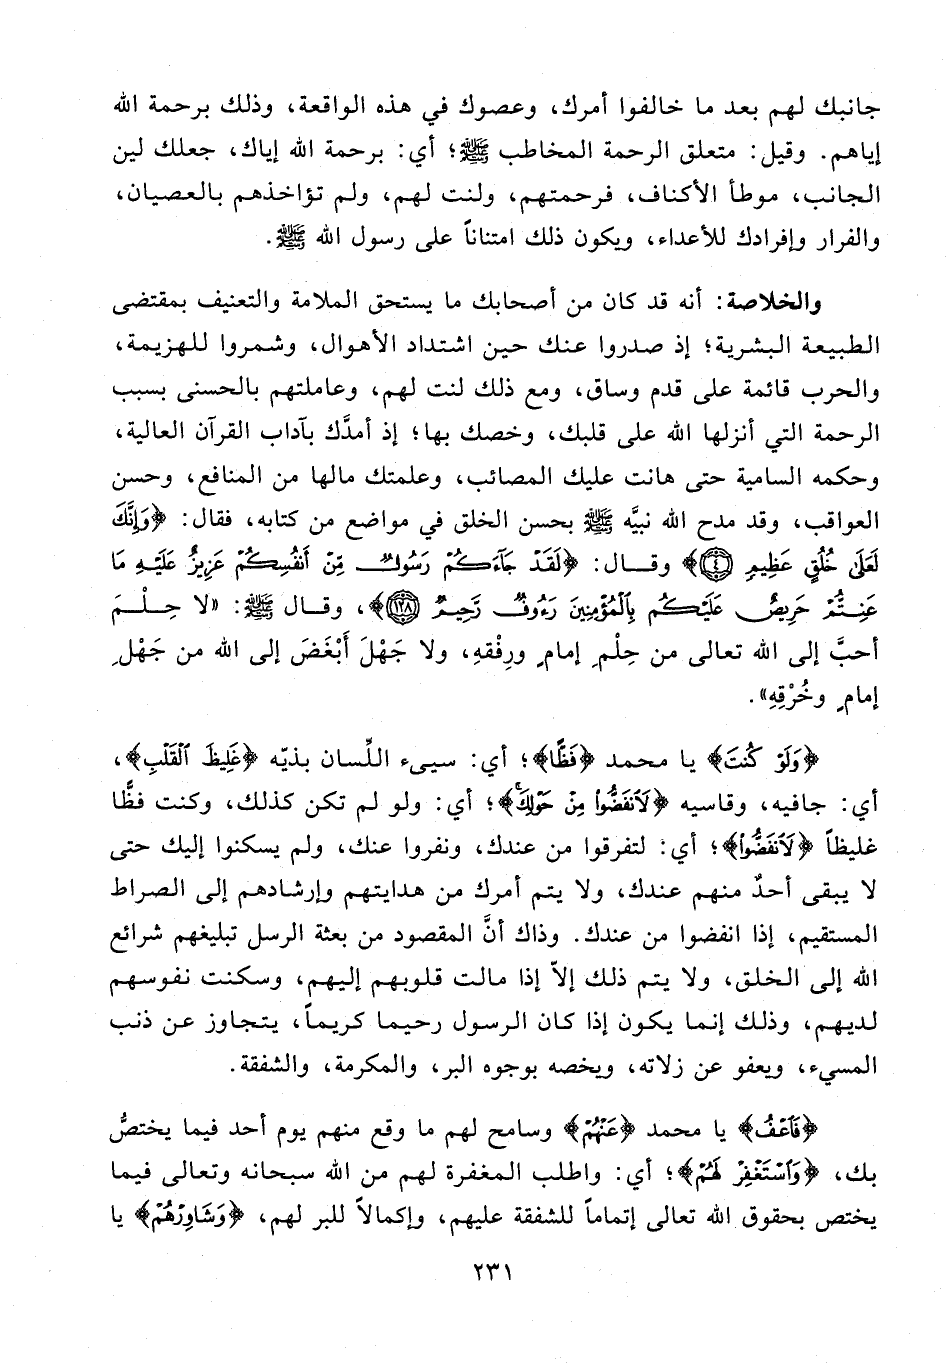 جانبك لهم بعد ما خالفوا أمرك، وعصوك في هذه الواقعة، وذلك برحمة الله
إياهم. وقيل: متعلق الرحمة المخاطب ﷺ؛ أي: برحمة الله إياك، جعلك لين
الجانب، موطأ الأكناف، فرحمتهم، ولنت لهم، ولم تؤاخذهم بالعصيان،
والفرار وإفرادك للأعداء، ويكون ذلك امتناناً على رسول الله ﷺ.
والخلاصة: أنه قد كان من أصحابك ما يستحق الملامة والتعنيف بمقتضى
الطبيعة البشرية؛ إذ صدروا عنك حين اشتداد الأهوال، وشمروا للهزيمة،
والحرب قائمة على قدم وساق، ومع ذلك لنت لهم، وعاملتهم بالحسنى بسبب
الرحمة التي أنزلها الله على قلبك، وخصك بها؛ إذ أمدَّك بآداب القرآن العالية،
وحكمه السامية حتى هانت عليك المصائب، وعلمتك مالها من المنافع، وحسن
العواقب، وقد مدح الله نبيَّه ﷺ بحسن الخلق في مواضع من كتابه، فقال: ﴿وَإِنَّكَ
لَعَلَىٰ خُلُقٍ عَظِيمٍ ﴿٤﴾﴾ وقال: ﴿لَقَدْ جَآءَكُمْ رَسُولٌ مِّنْ أَنفُسِكُمْ عَزِيزٌ عَلَيْهِ مَا
عَنِتُّمْ حَرِيصٌ عَلَيْكُم بِٱلْمُؤْمِنِينَ رَءُوفٌ رَّحِيمٌ ﴿١٢٨﴾﴾، وقال ﷺ: «لا حِلْمَ
أحبَّ إلى الله تعالى من حِلْمِ إمامٍ ورِفْقهِ، ولا جَهْلَ أَبْغَضَ إلى الله من جَهْلِ
إمامٍ وخُرْقِهِ».
﴿وَلَوْ كُنتَ﴾ يا محمد ﴿فَظًّا﴾؛ أي: سيىء اللِّسان بذيّه ﴿غَلِيظَ ٱلْقَلْبِ﴾،
أي: جافيه، وقاسيه ﴿لَٱنفَضُّوا۟ مِنْ حَوْلِكَ﴾؛ أي: ولو لم تكن كذلك، وكنت فظًّا
غليظاً ﴿لَٱنفَضُّوا۟﴾؛ أي: لتفرقوا من عندك، ونفروا عنك، ولم يسكنوا إليك حتى
لا يبقى أحدٌ منهم عندك، ولا يتم أمرك من هدايتهم وإرشادهم إلى الصراط
المستقيم، إذا انفضوا من عندك. وذاك أنَّ المقصود من بعثة الرسل تبليغهم شرائع
الله إلى الخلق، ولا يتم ذلك إلاّ إذا مالت قلوبهم إليهم، وسكنت نفوسهم
لديهم، وذلك إنما يكون إذا كان الرسول رحيما كريماً، يتجاوز عن ذنب
المسيء، ويعفو عن زلاته، ويخصه بوجوه البر، والمكرمة، والشفقة.
﴿فَٱعْفُ﴾ يا محمد ﴿عَنْهُمْ﴾ وسامح لهم ما وقع منهم يوم أحد فيما يختصُّ
بك، ﴿وَٱسْتَغْفِرْ لَهُمْ﴾؛ أي: واطلب المغفرة لهم من الله سبحانه وتعالى فيما
يختص بحقوق الله تعالى إتماماً للشفقة عليهم، وإكمالاً للبر لهم، ﴿وَشَاوِرْهُمْ﴾ يا
٢٣١